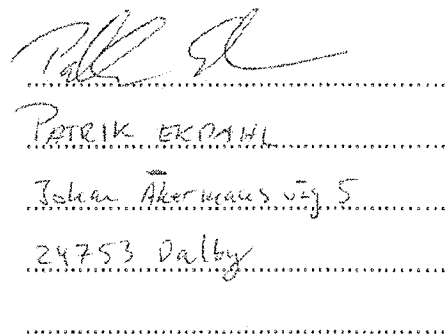 PATRIK EKDAHL
Johan Åkermans väg 5
24753 Dalby